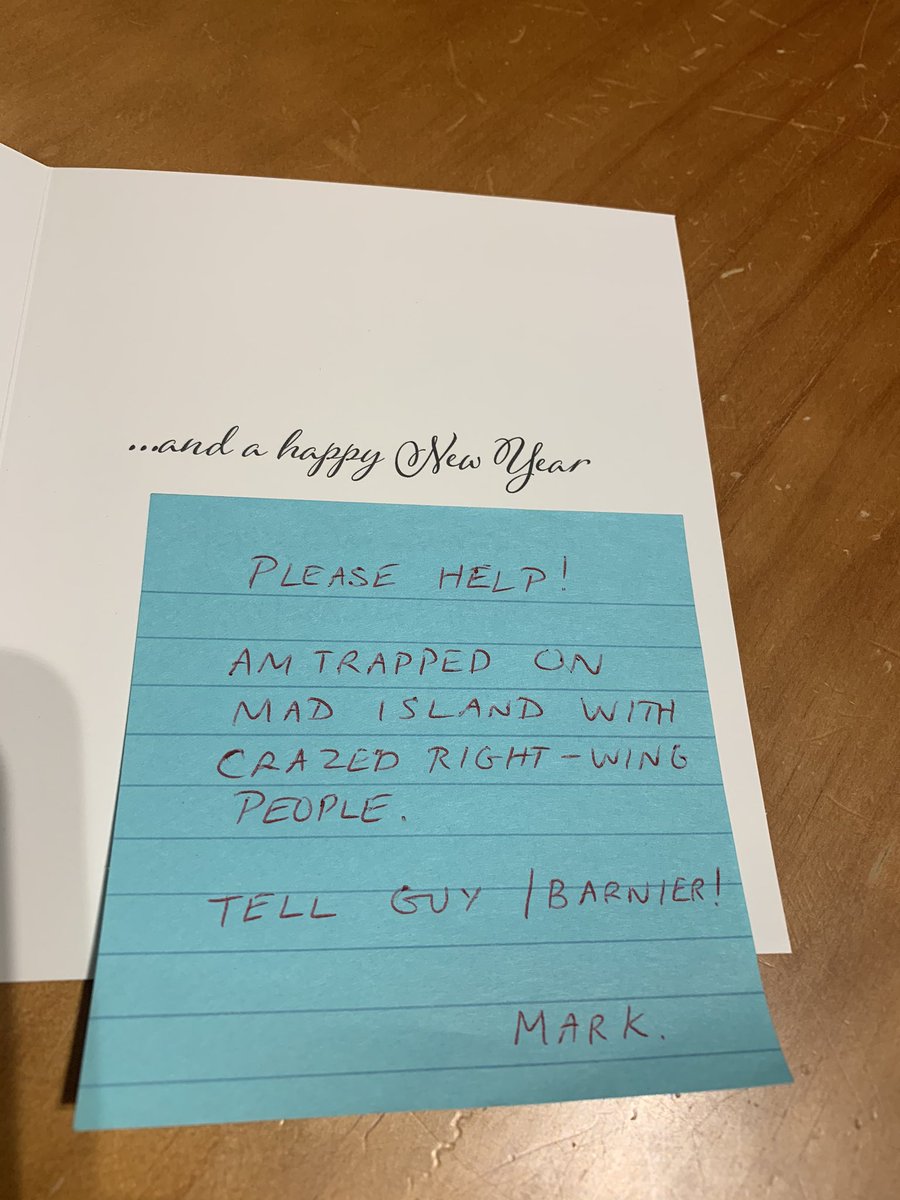 ...and a happy New Year
PLEASE HELP!
AM TRAPPED ON
MAD ISLAND WITH
CRAZED RIGHT-WING
PEOPLE.
TELL GUY / BARNIER!
MARK.